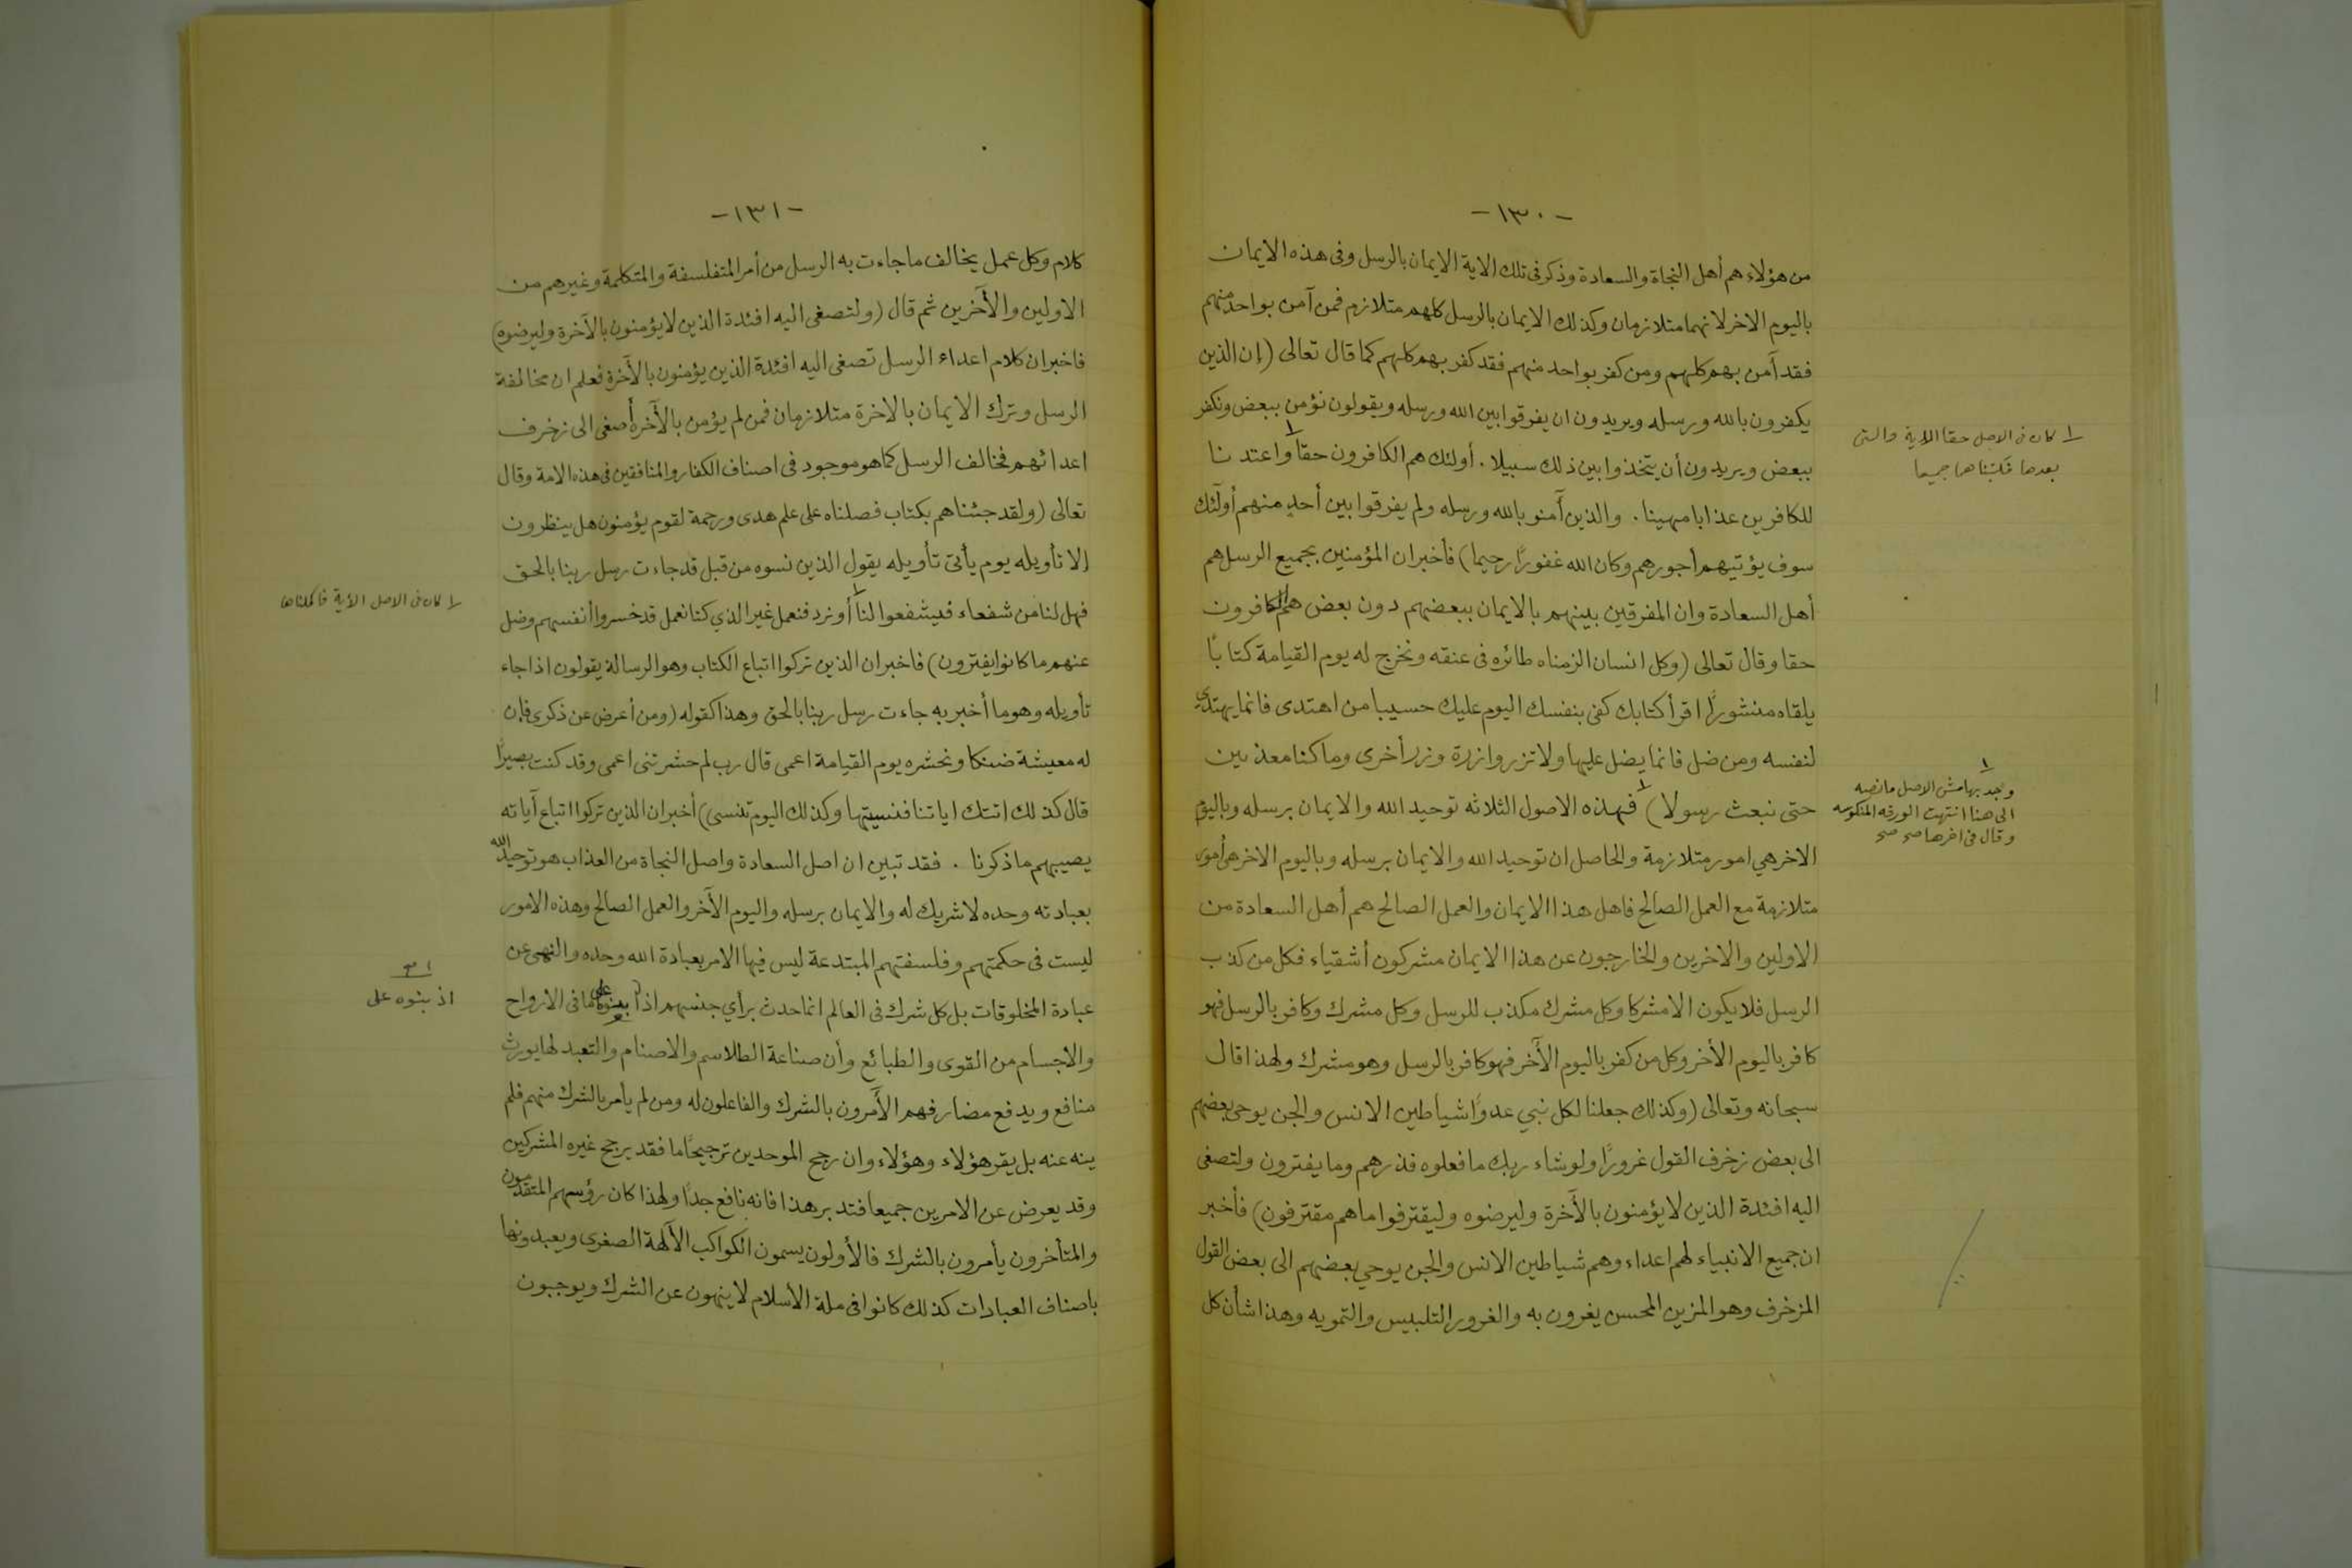 -١٣٠-
من هؤلاء هم أهل النجاة والسعادة وذكر فى تلك الاية الايمان بالرسل وفى هذه الايمان
باليوم الاخر لانهما متلازمان وكذلك الايمان بالرسل كلهم متلازم فمن آمن بواحد منهم
فقد آمن بهم كلهم ومن كفر بواحد منهم فقد كفر بهم كلهم كما قال تعالى (إن الذين
يكفرون بالله ورسله ويريدون ان يفرقوا بين الله ورسله ويقولون نؤمن ببعض ونكفر
ببعض ويريدون أن يتخذوا بين ذلك سبيلا. أولئك هم الكافرون حقا ١ واعتدنا
للكافرين عذابا مهينا. والذين آمنو بالله ورسله ولم يفرقوا بين أحدٍ منهم أولٓئك
سوف يؤتيهم أجورهم وكان الله غفورًا رحيما) فأخبر ان المؤمنين بجميع الرسل هم
أهل السعادة وان المفرقين بينهم بالايمان ببعضهم دون بعض هم الكافرون
حقا وقال تعالى (وكل انسان الزمناه طائره فى عنقه ونخرج له يوم القيامة كتابًا
يلقاه منشورًا اقرأ كتابك كفى بنفسك اليوم عليك حسيبا من اهتدى فانما يهتدي
لنفسه ومن ضل فانما يضل عليها ولا تزر وازرة وزر أخرى وما كنا معذبين
حتى نبعث رسولا) ١ فهذه الاصول الثلاثه توحيد الله والايمان برسله وباليوم
الاخر هي امور متلازمة والحاصل ان توحيد الله والايمان برسله وباليوم الاخر هى أمور
متلازمة مع العمل الصالح فاهل هذا الايمان والعمل الصالح هم أهل السعادة من
الاولين والاخرين والخارجون عن هذا الايمان مشركون أشقياء فكل من كذب
الرسل فلا يكون الا مشركا وكل مشرك مكذب للرسل وكل مشرك وكافر بالرسل فهو
كافر باليوم الأخر وكل من كفر باليوم الآخر فهو كافر بالرسل وهو مشرك ولهذا قال
سبحانه وتعالى (وكذلك جعلنا لكل نبي عدوًا شياطين الانس والجن يوحى بعضهم
الى بعض زخرف القول غرورًا ولو شاء ربك ما فعلوه فذرهم وما يفترون ولتصغى
اليه افئدة الذين لا يؤمنون بالأخرة وليرضوه وليقترفوا ما هم مقترفون) فأخبر
ان جميع الانبياء لهم اعداء وهم شياطين الانس والجن يوحي بعضهم الى بعض القول
المزخرف وهو المزين المحسن يغرون به والغرور التلبيس والتمويه وهذا شأن كل
١ كان فى الاصل حقا الأية والتى
بعدها فكتبناهما جميعا
١
وجد بهامش الاصل ما نصه
الى هنا انتهت الورقه المنكوسه
وقال فى اخرها صح صح
-١٣١-
كلام وكل عمل يخالف ما جاءت به الرسل من أمر المتفلسفة والمتكلمة وغيرهم من
الاولين والآخرين ثم قال (ولتصغى اليه افئدة الذين لا يؤمنون بالآخرة وليرضوه)
فاخبر ان كلام اعداء الرسل تصغى اليه افئدة الذين يؤمنون بالآخرة فعلم ان مخالفة
الرسل وترك الايمان بالاخرة متلازمان فمن لم يؤمن بالآخرة أصغى الى زخرف
اعدائهم فخالف الرسل كما هو موجود فى اصناف الكفار والمنافقين فى هذه الامة وقال
تعالى (ولقد جئناهم بكتاب فصلناه على علم هدى ورحمة لقوم يؤمنون هل ينظرون
إلا تأويله يوم يأتى تأويله يقول الذين نسوه من قبل قد جاءت رسل ربنا بالحق
فهل لنا من شفعاء فيشفعوا لنا ١ أو نرد فنعمل غير الذي كنا نعمل قد خسروا أنفسهم وضل
عنهم ما كانوا يفترون) فاخبر ان الذين تركوا اتباع الكتاب وهو الرسالة يقولون اذا جاء
تأويله وهو ما أخبر به جاءت رسل ربنا بالحق وهذا كقوله (ومن أعرض عن ذكرى فإن
له معيشة ضنكا ونحشره يوم القيامة اعمى قال رب لم حشرتنى اعمى وقد كنت بصيرًا
قال كذلك اتتك اياتنا فنسيتها وكذلك اليوم تنسى) أخبر ان الذين تركوا اتباع آياته
يصيبهم ما ذكرنا . فقد تبين ان اصل السعادة واصل النجاة من العذاب هو توحيد الله
بعبادته وحده لا شريك له والايمان برسله واليوم الآخر والعمل الصالح وهذه الامور
ليست فى حكمتهم وفلسفتهم المبتدعة ليس فيها الامر بعبادة الله وحده والنهى عن
عبادة المخلوقات بل كل شرك فى العالم انما حدث برأي جنسهم اذا بنوه على ما فى الارواح
والاجسام من القوى والطبائع وأن صناعة الطلاسم والاصنام والتعبد لها يورث
منافع ويدفع مضار فهم الآمرون بالشرك والفاعلون له ومن لم يأمر بالشرك منهم فلم
ينه عنه بل يقر هؤلاء وهؤلاء وان رجح الموحدين ترجيحًا ما فقد يرجح غيره المشركين
وقد يعرض عن الامرين جميعا فتدبر هذا فانه نافع جدًا ولهذا كان رؤسهم المتقدمون
والمتأخرون يأمرون بالشرك فالأولون يسمون الكواكب الآلهة الصغرى ويعبدونها
باصناف العبادات كذلك كانوا فى ملة الأسلام لا ينهون عن الشرك ويوجبون
١ كان فى الاصل الأية فاكملناها
اذ بنوه على